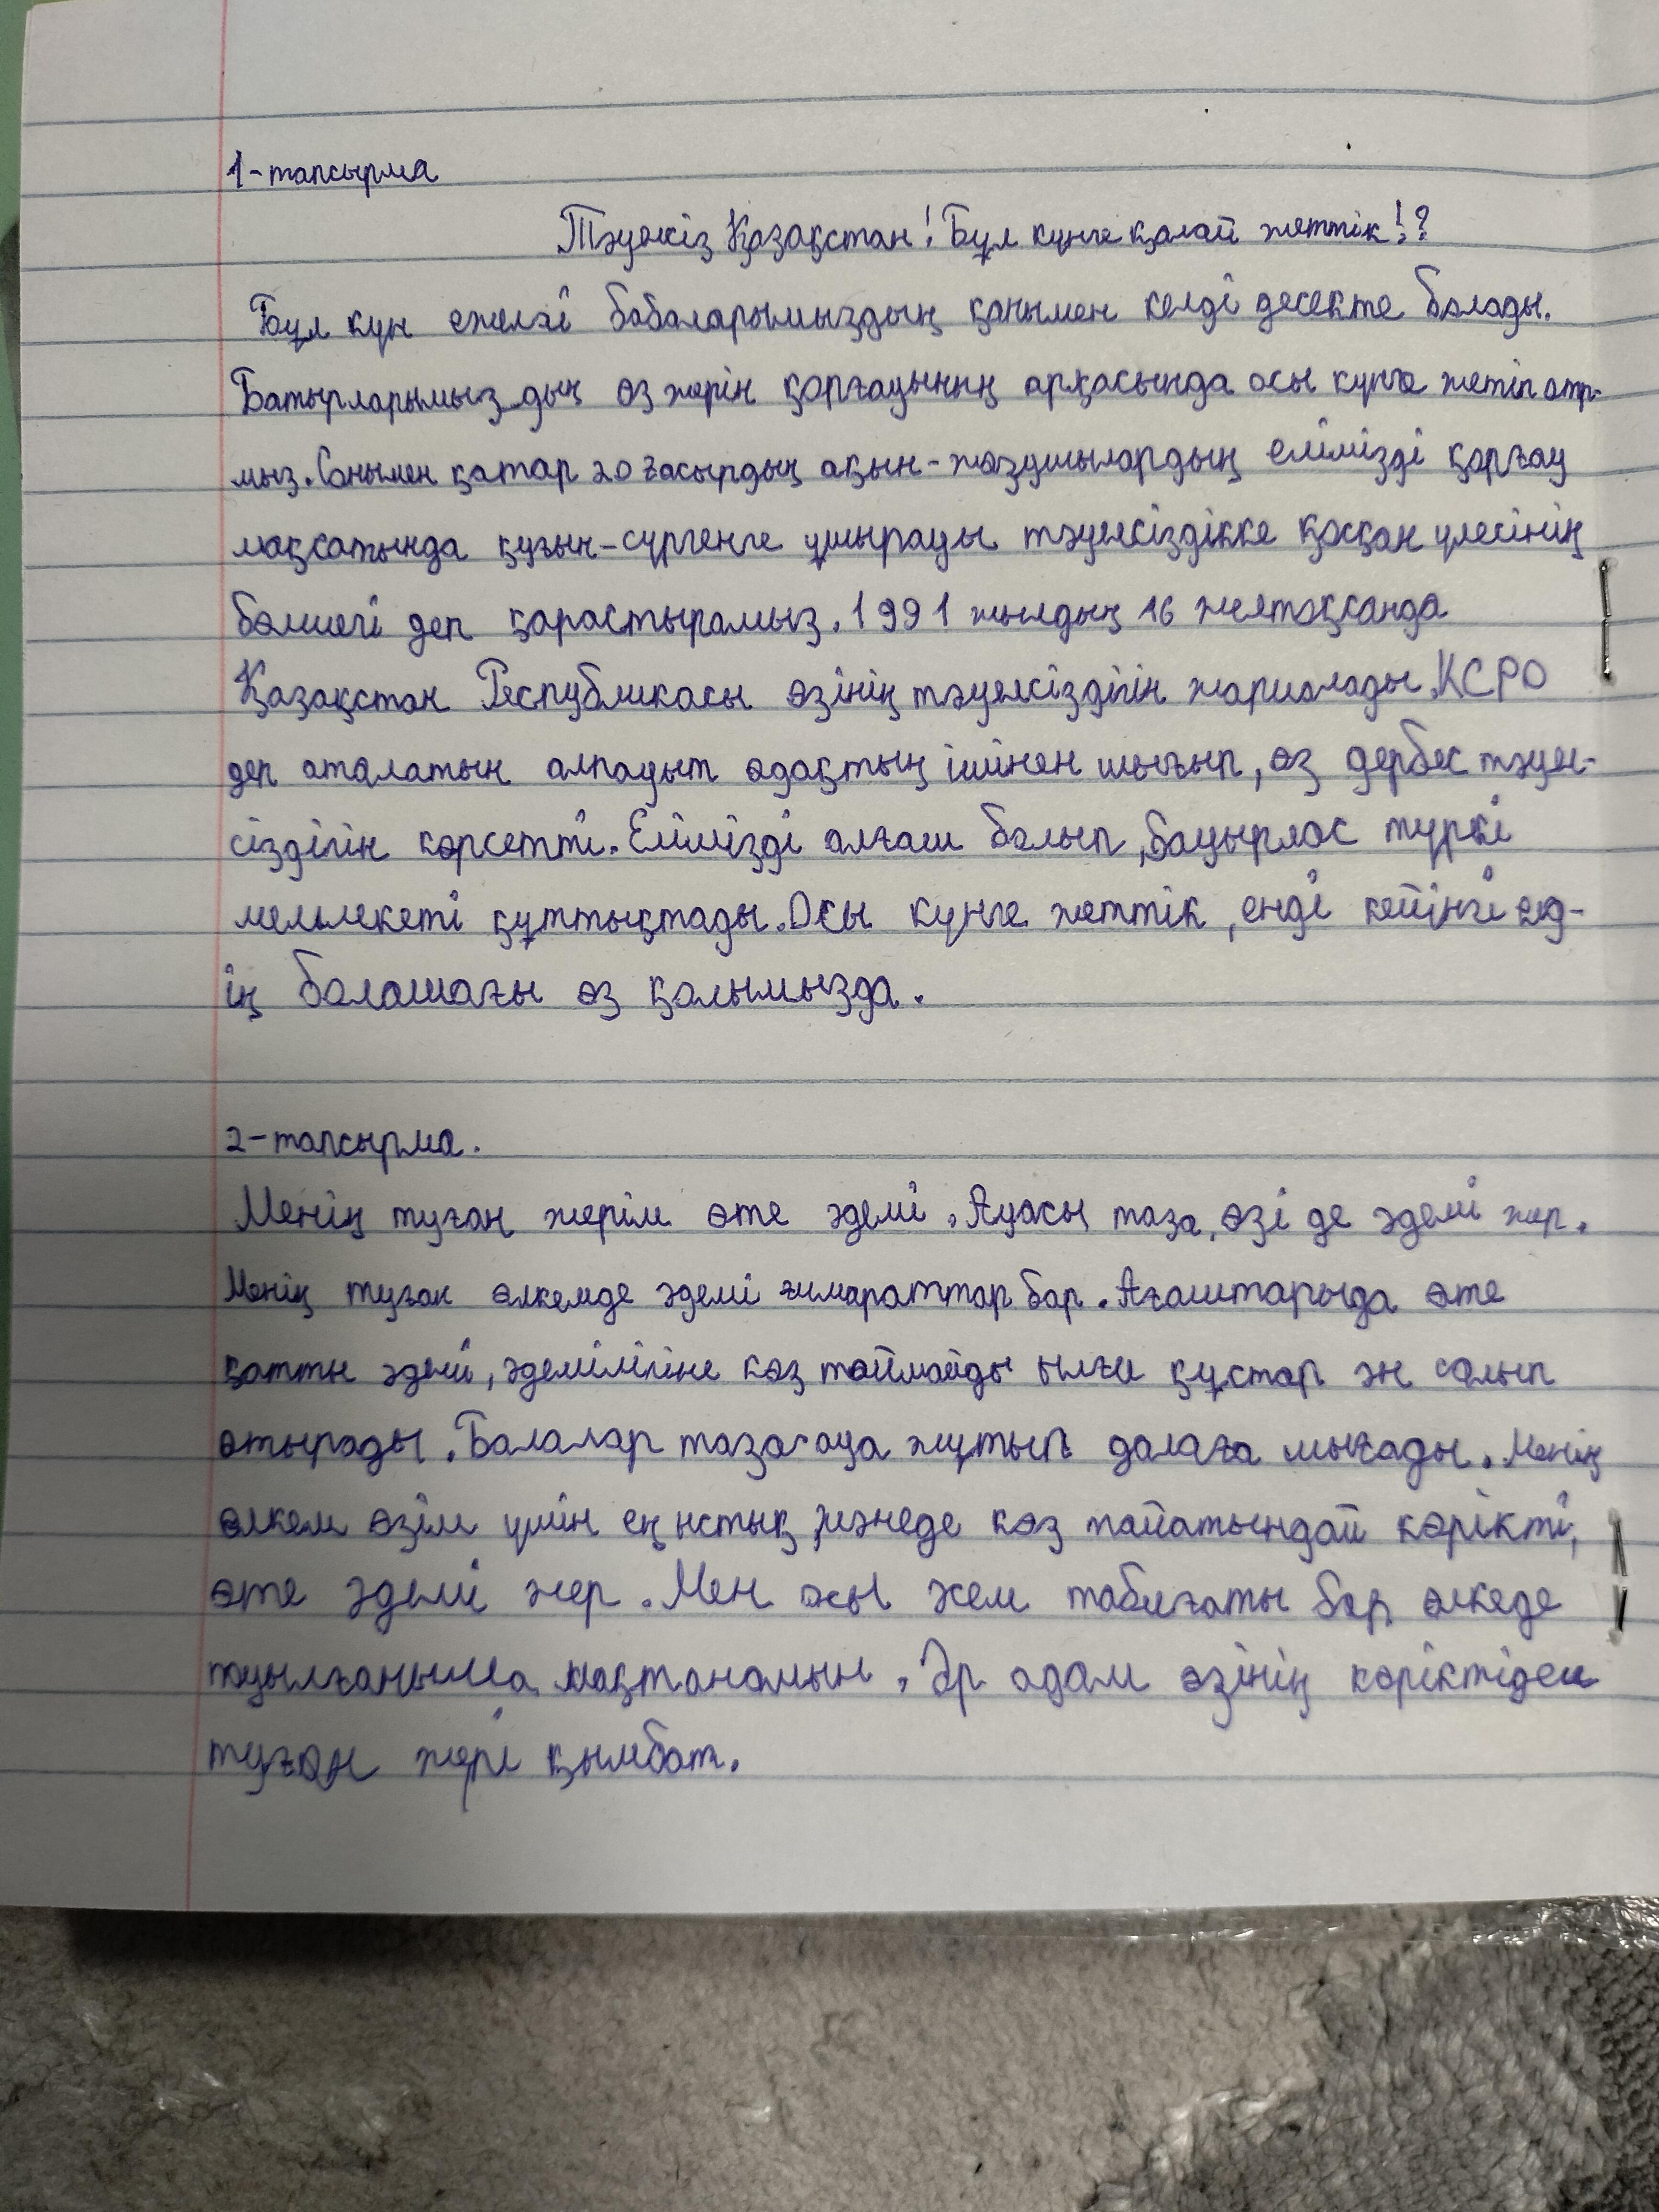 1-тапсырма
Тәуелсіз Қазақстан! Бұл күнге қалай жеттік!?
Бұл күн ежелгі бабаларымыздың қанымен келді десекте болады.
Батырларымыздың өз жерін қорғауының арқасында осы күнге жетіп отр-
мыз. Сонымен қатар 20 ғасырдың ақын-жазушылардың елімізді қорғау
мақсатында қуғын-сүргенге ұшырауы тәуелсіздікке қосқан үлесінің
бөлшегі деп қарастырамыз. 1991 жылдың 16 желтоқсанда
Қазақстан Республикасы өзінің тәуелсіздігін жариялады. КСРО
деп аталатын алпауыт одақтың ішінен шығып, өз дербес тәуел-
сіздігін көрсетті. Елімізді алғаш болып, бауырлас түркі
мемлекеті құттықтады. Осы күнге жеттік, енді кейінгі
ің болашағы өз қолымызда.
2-тапсырма.
Менің туған жерім өте әдемі. Ауасы таза, өзі де әдемі жер.
Менің туған өлкемде әдемі ғимараттар бар. Ағаштарыда өте
қатты әдемі, әдемілігіне көз тоймайды ылғи құстар ән салып
отырады. Балалар таза ауа жұтып далаға шығады. Менің
өлкем өзім үшін ең ыстық, жәнеде көз тоятындай көрікті,
өте әдемі жер. Мен осы жем табиғаты бар өлкеде
туылғаныма мақтанамын. Әр адам өзінің көріктіден
туған жері қымбат.